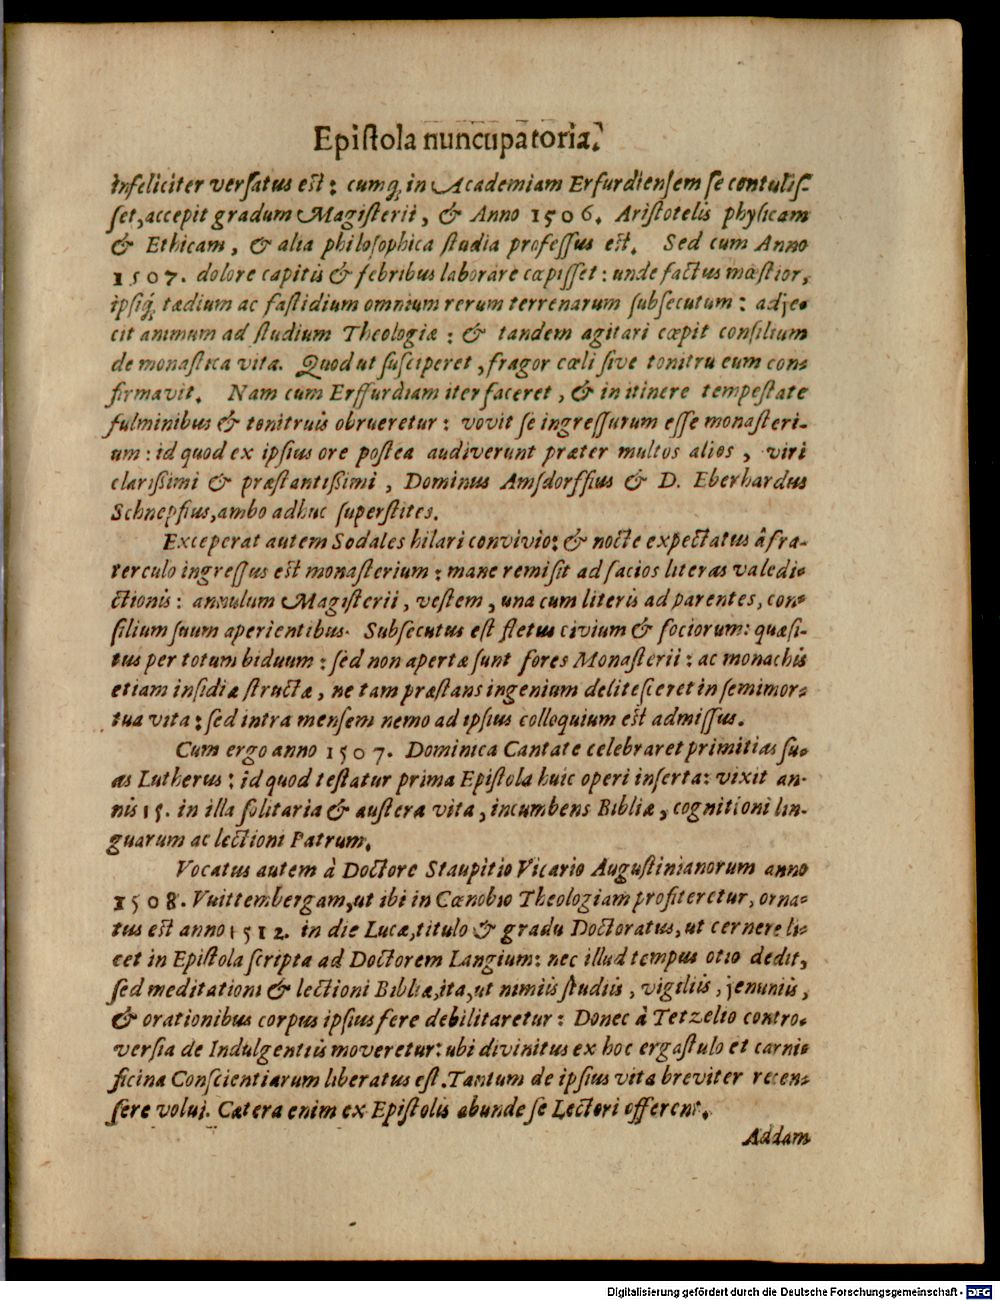 Epiſtola nuncupatoria.
infeliciter verſatus eſt: cumq; in Academiam Erfurdienſem ſe contuliſ-
ſet, accepit gradum Magiſterii, & Anno 1506. Ariſtotelis phyſicam
& Ethicam, & alia philoſophica ſtudia profeſſus eſt. Sed cum Anno
1507. dolore capitis & febribus laborare cœpiſſet: unde factus mœſtior,
ipſiq; tædium ac faſtidium omnium rerum terrenarum ſubſecutum: adje-
cit animum ad ſtudium Theologiæ: & tandem agitari cœpit conſilium
de monaſtica vita. Quod ut ſuſciperet, fragor cœli ſive tonitru eum con-
firmavit. Nam cum Erffurdiam iter faceret, & in itinere tempeſtate
fulminibus & tonitruis obrueretur: vovit ſe ingreſſurum eſſe monaſteri-
um: id quod ex ipſius ore poſtea audiverunt præter multos alios, viri
clarißimi & præſtantißimi, Dominus Amſdorffius & D. Eberhardus
Schnepfius, ambo adhuc ſuperſtites.
Exceperat autem Sodales hilari convivio: & nocte expectatus â fra-
terculo ingreſſus eſt monaſterium: mane remiſit ad ſacios literas valedi-
ctionis: annulum Magiſterii, veſtem, una cum literis ad parentes, con-
ſilium ſuum aperientibus. Subſecutus eſt fletus civium & ſociorum: quæſi-
tus per totum biduum: ſed non apertæ ſunt fores Monaſterii: ac monachis
etiam inſidiæ ſtructæ, ne tam præſtans ingenium deliteſceret in ſemimor-
tua vita: ſed intra menſem nemo ad ipſius colloquium eſt admiſſus.
Cum ergo anno 1507. Dominica Cantate celebraret primitias ſu-
as Lutherus: id quod teſtatur prima Epiſtola huic operi inſerta: vixit an-
nis 15. in illa ſolitaria & auſtera vita, incumbens Bibliæ, cognitioni lin-
guarum ac lectioni Patrum.
Vocatus autem à Doctore Staupitio Vicario Auguſtinianorum anno
1508. Vuittembergam, ut ibi in Cœnobio Theologiam profiteretur, orna-
tus eſt anno 1512. in die Lucæ, titulo & gradu Doctoratus, ut cernere li-
cet in Epiſtola ſcripta ad Doctorem Langium: nec illud tempus otio dedit,
ſed meditationi & lectioni Bibliæ, ita, ut nimiis ſtudiis, vigiliis, jenuniis,
& orationibus corpus ipſius fere debilitaretur: Donec à Tetzelio contro-
verſia de Indulgentiis moveretur: ubi divinitus ex hoc ergaſtulo et carni-
ficina Conſcientiarum liberatus eſt. Tantum de ipſius vita breviter recen-
ſere volui. Cætera enim ex Epiſtolis abunde ſe Lectori offerent.
Addam
Digitalisierung gefördert durch die Deutsche Forschungsgemeinschaft - DFG